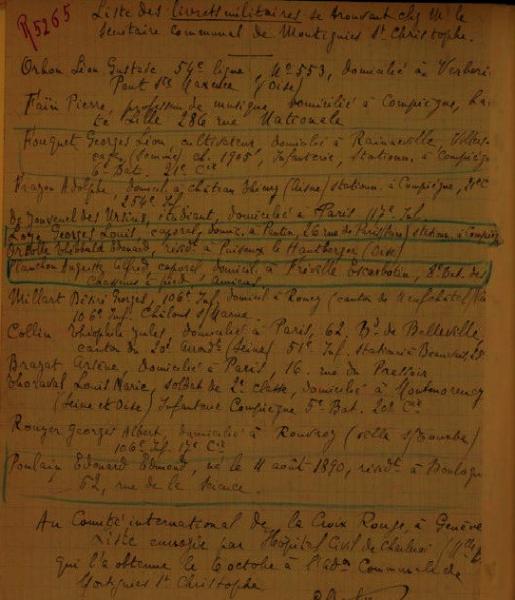 R 5265
Liste des livrets militaires se trouvant chez Mr le
secrétaire communal de Montignies St Christophe.
Orhon Léon Gustave, 54e ligne No 553, domicilié à Verberie
Pont Ste Maxence (Oise)
Faïn Pierre, professeur de musique, domicilié à Compiègne,
Lille 286 rue Nationale
Fouquet Georges Léon cultivateur, domicilié à Rainneville, Villers-
(Somme) cl. 1905, Infanterie, stationn. à Compiègne
6e Bat. 21e Cie
Adolphe domicil. à Château Thierry (Aisne) stationn. à Compiègne, 21e C
254e Inf.
De Jouvenel des Ursins, étudiant, domicilié à Paris 117e Inf.
Georges Louis, caporal, domic. à Pantin, 26 rue de stationn. à Compiègne
Thibbald Edouard, résidt à Puiseux le Hautberger (Oise)
Alfred, caporal, domicil. à Fréville Escarbotin, 8e Bat. des
chasseurs à pied, Amiens
Millart Désiré Georges, 106e Inf. domicil. à Roucy (canton de Neufchâtel)
106e Inf. Châlons s/Marne.
Collin Théophile Jules domicilié à Paris, 62, Bd de Belleville,
canton du 20e Arrondt (Seine) 51e Inf. stationné à Beauvais,
Brazat Arsène, domicilié à Paris, 16. rue du Pressoir
Thoraval Louis Marie, soldat de 2e classe, domicilié à Montmorency
(Seine et Oise) Infanterie Compiègne 5e Bat. 20e Cie
Rouyer Georges Albert domicilié à Rouvroy (
106e Inf. 17e Cie
Poulain Edouard Edmond, né le 11 août 1890, résidt à Boulogne
62, rue de la Science.
Au Comité international de la Croix Rouge, à Genève
Liste envoyée par Hôpital Civil de Charleroi
qui l'a obtenue le 6 octobre à l'adon Communale de
Montignies St Christophe